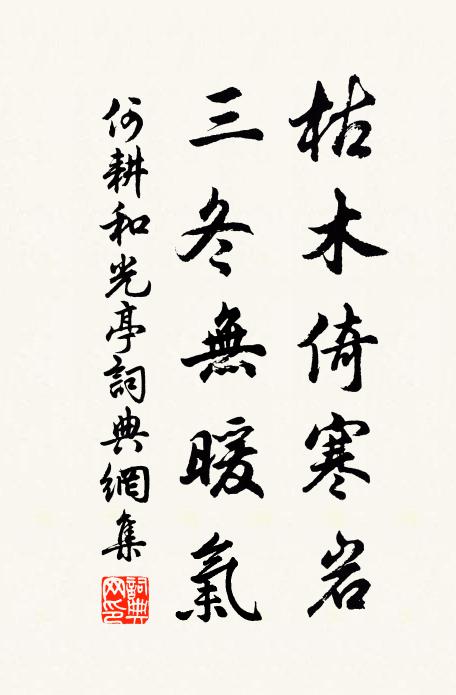 枯木倚寒岩
三冬無暖氣
何耕和光亭詞典網集
詞典網印